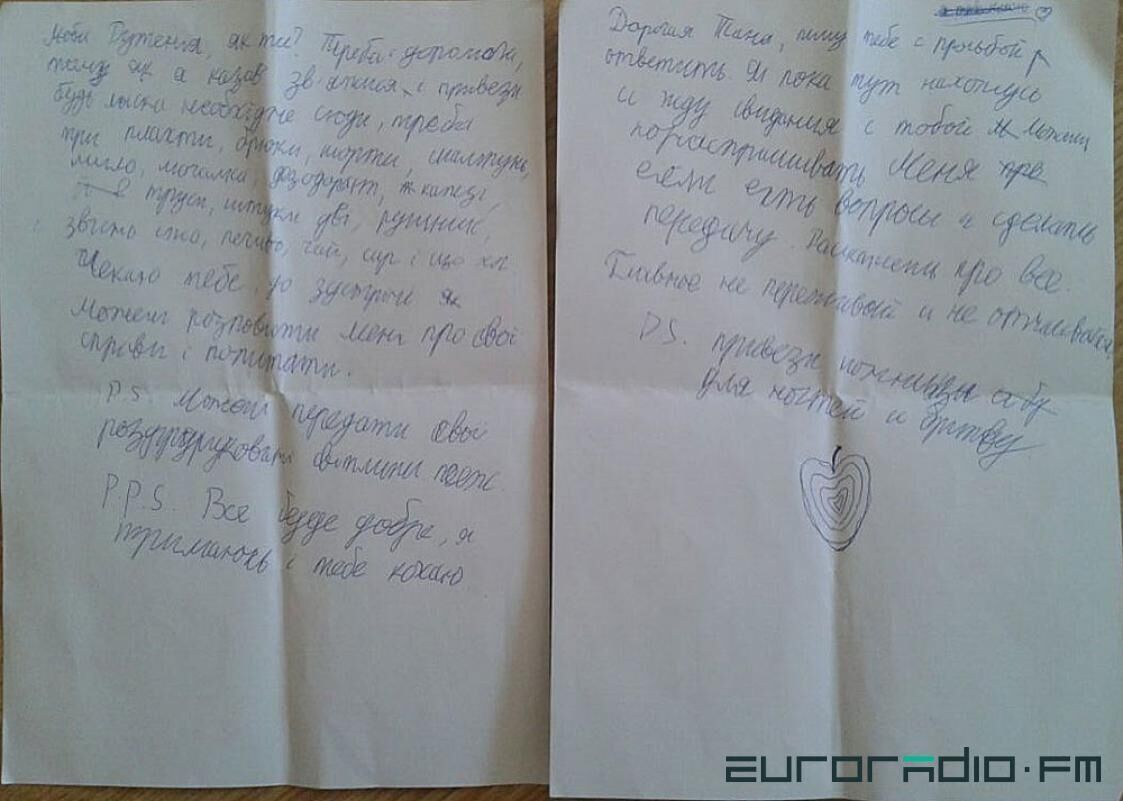 як ти? Треба допомога,
тому як я казав зв і привези
будь ласка необхідне сюди, треба
три плахти, брюки, шорти, шампунь,
мило, мочалка, дезодорант, капці,
труси, штуки дві, рушник,
звісно їжа, печиво, чай, сир і що хл
Чекаю тебе, до зустрічі
Можеш розповісти мені про свої
справи і попитати.
P.S. Можеш передати свої
роздруковані світлини теж.
P.P.S. Все буде добре, я
тримаюсь і тебе кохаю
Дорогая Тана, пишу тебе с просьбой
ответить. Я пока тут нахожусь
и жду свидания с тобой Можешь
порасспрашивать меня
если есть вопросы и сделать
передачу. Расскажешь про все.
Главное не переживай и не отчаивайся
P.S. привези ножницы
для ногтей и бритву
euroradio.fm